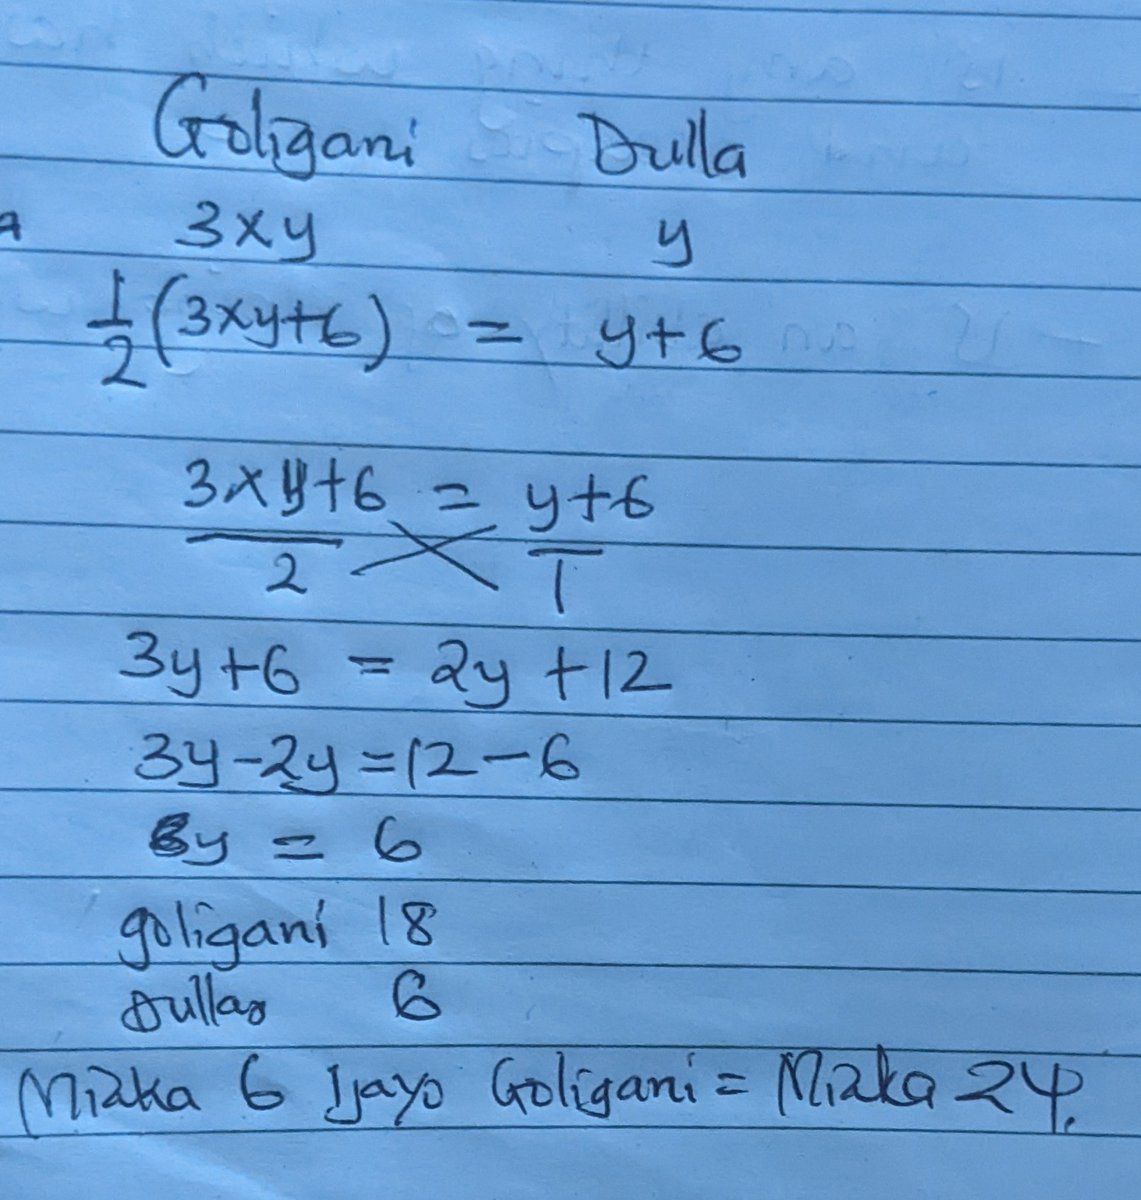 Goligani Dulla
3xy y
1/2 (3xy+6) = y+6
3xy+6 = y+6
2 1
3y+6 = 2y+12
3y-2y=12-6
y = 6
goligani 18
Dulla 6
Miaka 6 Ijayo Goligani = Miaka 24.